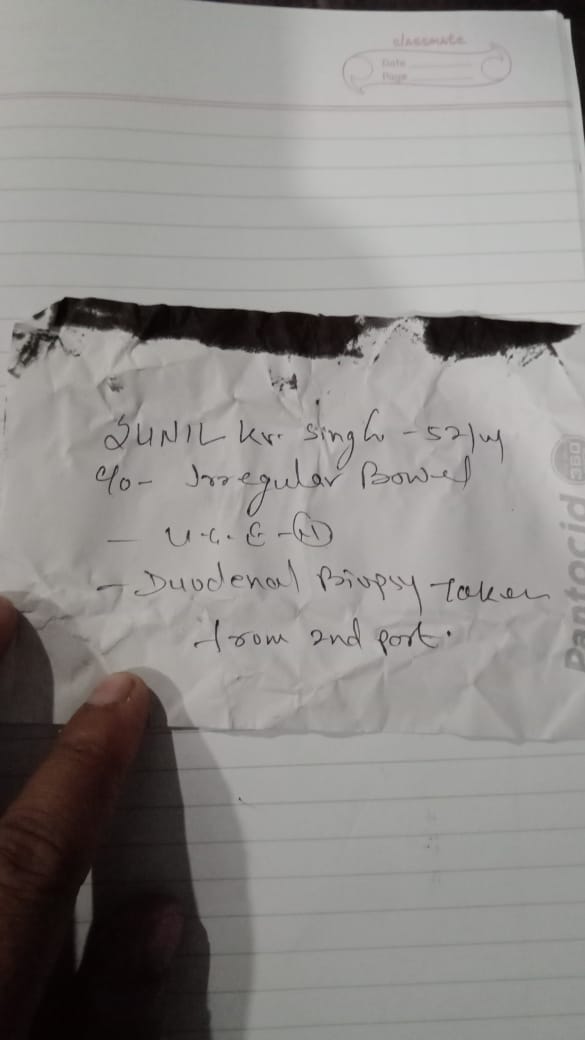 classmate
Date
Page
SUNIL Kr. Singh - 52/M
c/o - Irregular Bowel
- U.G.E - (N)
- Duodenal Biopsy taken
from 2nd part.
Pantocid